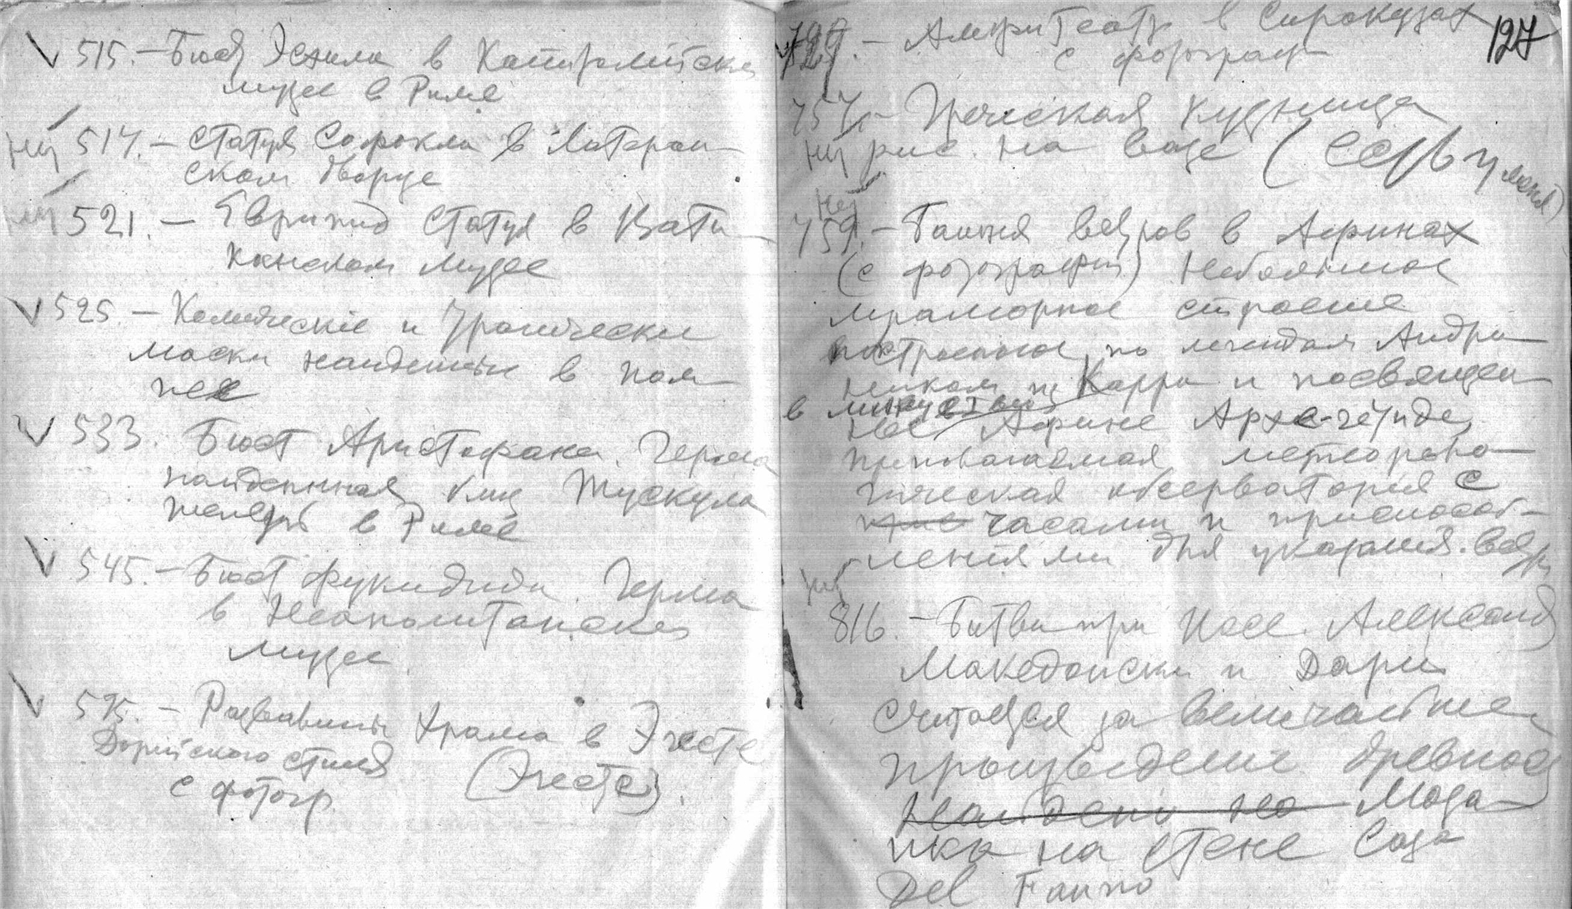 515. — Бюст Эсхила в Капитолийском
музее в Риме
нет 517. — Статуя Софокла в Латеран-
ском дворце
нет 521. — Еврипид статуя в Вати-
канском музее
525 — Комические и Трагические
маски найденные в Пом-
пее
533. Бюст Аристофана. Герма
найденная близ Тускула
теперь в Риме
545. — Бюст Фукидида. Герма
в Неаполитанском
музее.
595. — Развалины храма в Эгесте
Дорийского стиля (Эгесте).
с фотогр.
127
729. — Амфитеатр в Сиракузах
с фотограф
757. — Греческая кузница
нет рис. на вазе (Есть у меня)
нет
759. — Башня ветров в Афинах
(с фотографии) Небольшое
мраморное строение
построенное, по мнениям Андро-
ником из Карры и посвящен-
в
ное Афине Архегетиде,
предполагаемая метеороло-
гическая обсерватория с
часами и приспособ-
лениями для указания ветр
нет
816. — Битва при Иссе. Александр
Македонски и Дари
считается за величайшее
произведение древности
Найдено на Моза-
ика на стене Casa
Del Fauno